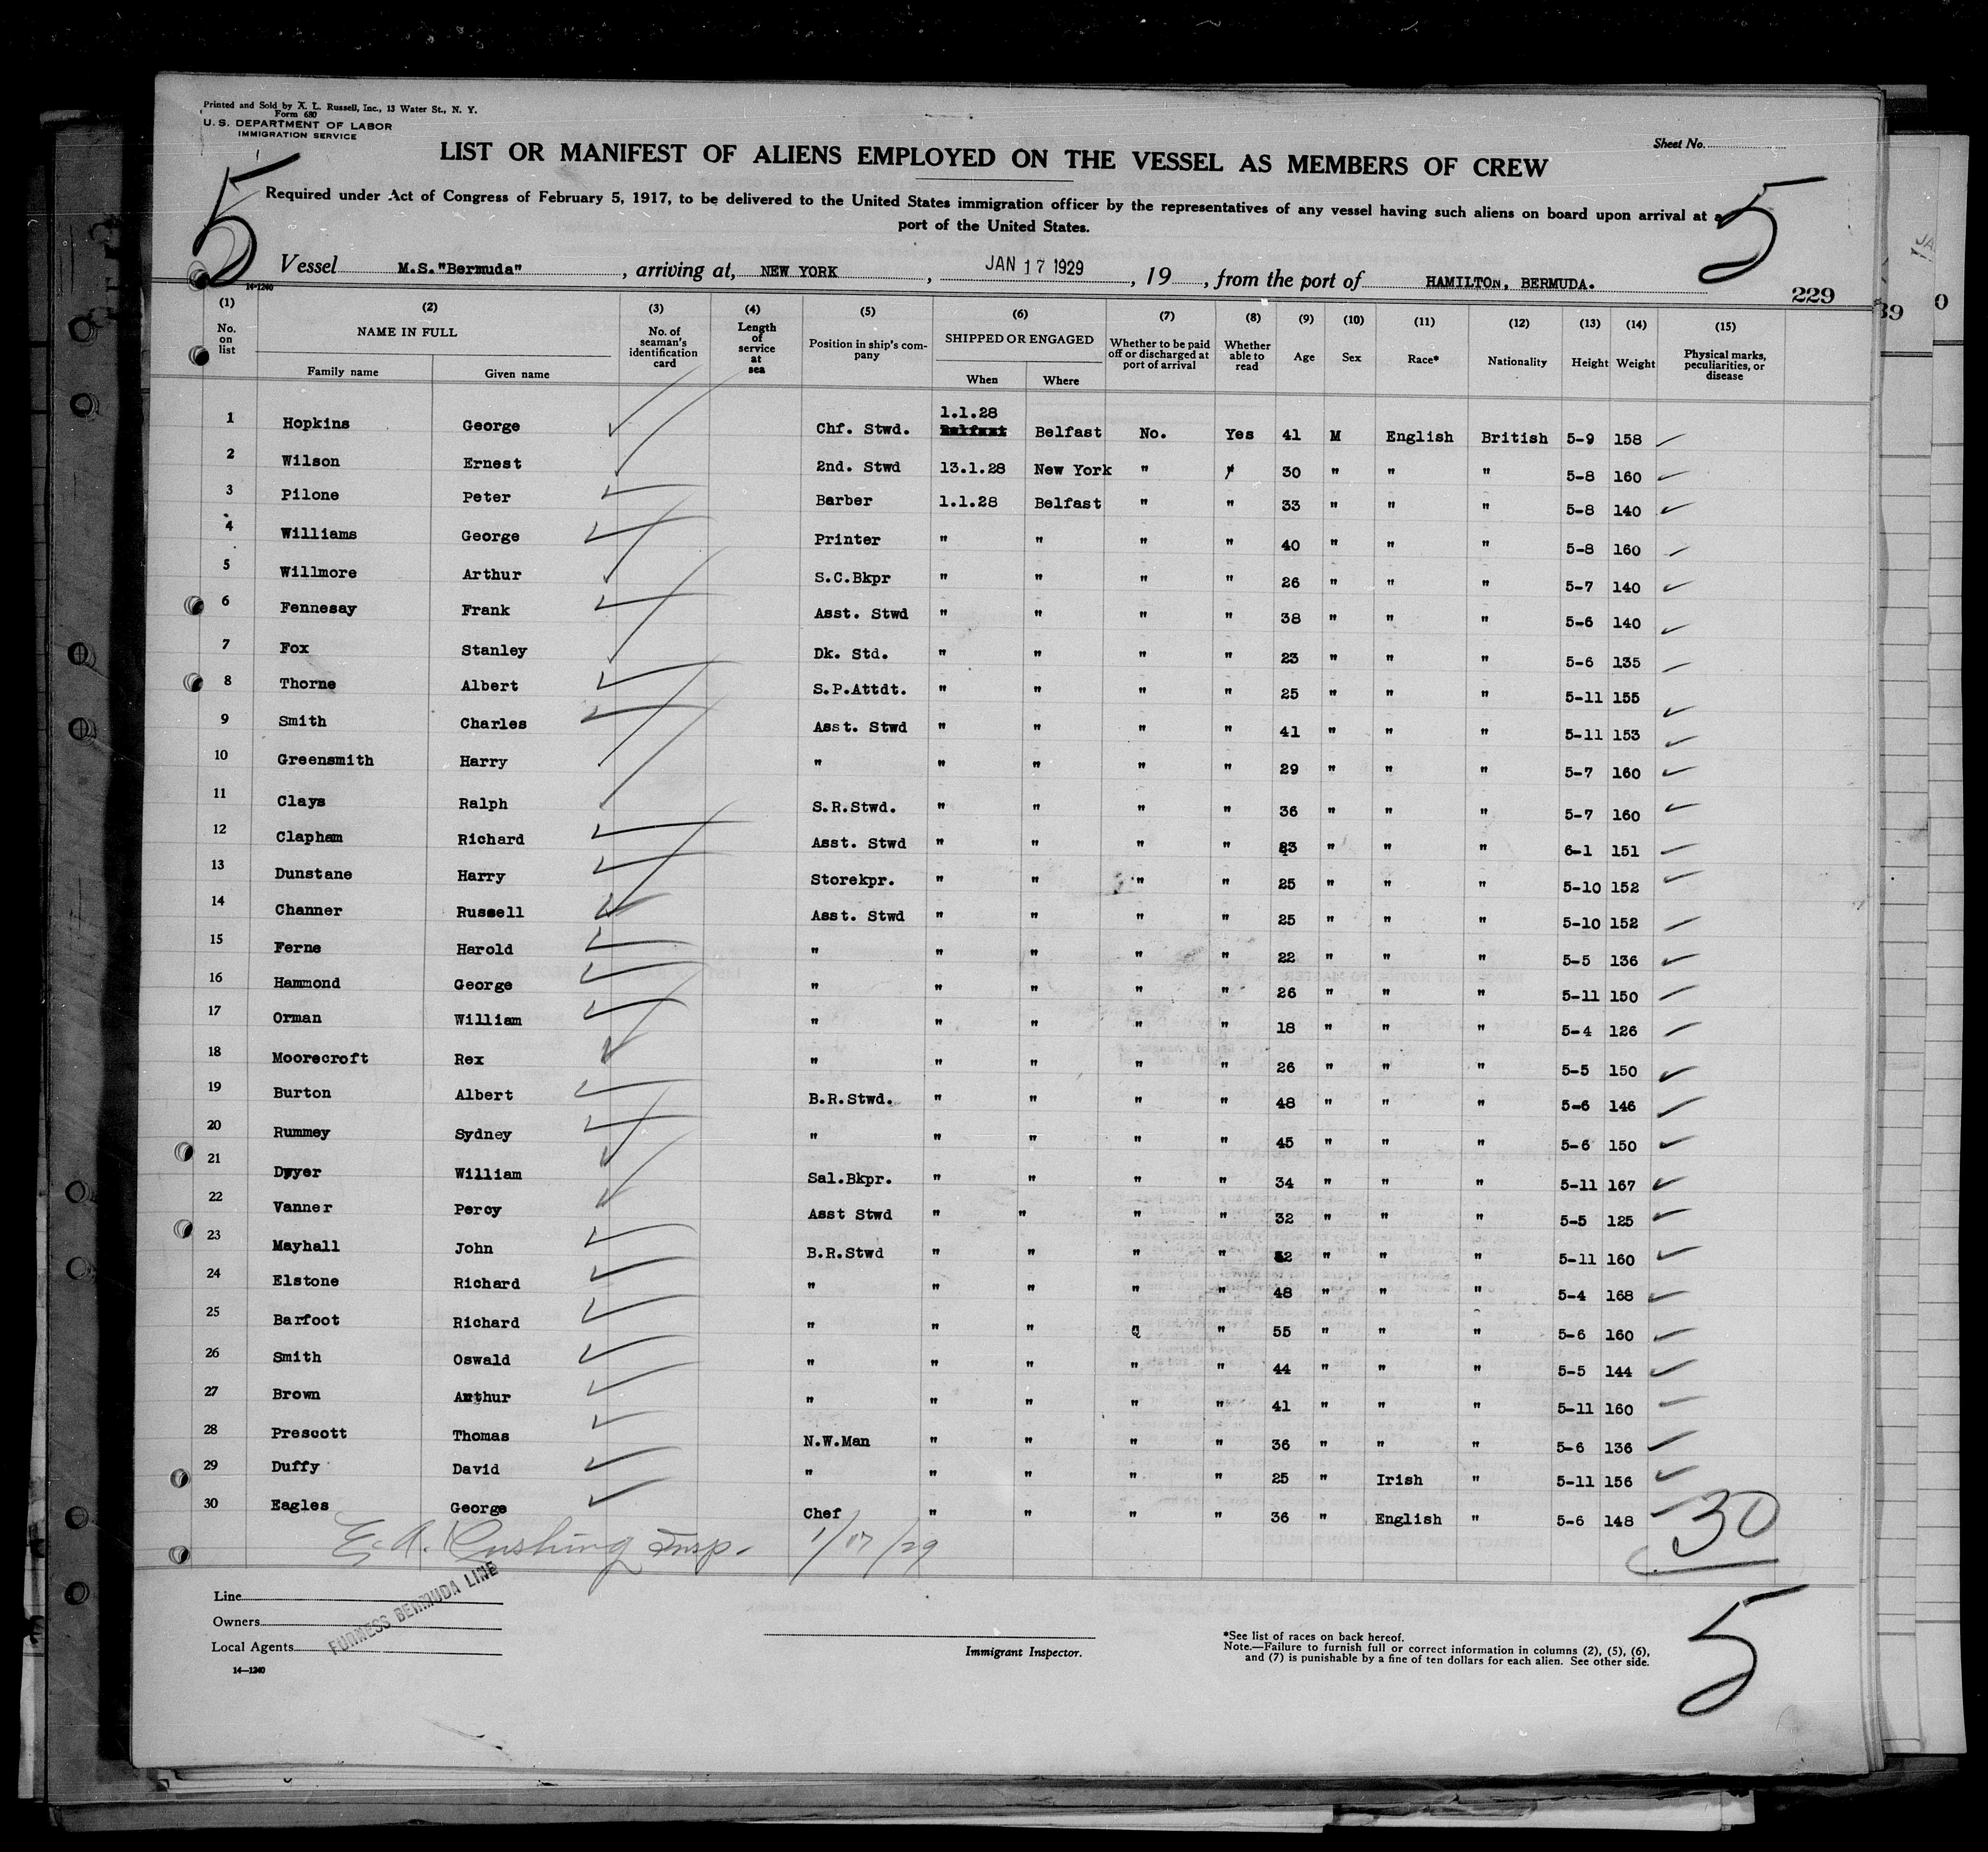 Printed and Sold by A. L. Russell, Inc., 13 Water St., N. Y.
Form 680
U. S. DEPARTMENT OF LABOR
IMMIGRATION SERVICE
Sheet No.
LIST OR MANIFEST OF ALIENS EMPLOYED ON THE VESSEL AS MEMBERS OF CREW
5 5
Required under Act of Congress of February 5, 1917, to be delivered to the United States immigration officer by the representatives of any vessel having such aliens on board upon arrival at a
port of the United States.
Vessel M.S."Bermuda", arriving at, NEW YORK, JAN 17 1929, 19, from the port of HAMILTON, BERMUDA.
14-1240
229
(1) (2) (3) (4) (5) (6) (7) (8) (9) (10) (11) (12) (13) (14) (15)
No. on list NAME IN FULL Family name Given name No. of seaman's identification card Length of service at sea Position in ship's company SHIPPED OR ENGAGED When Where Whether to be paid off or discharged at port of arrival Whether able to read Age Sex Race* Nationality Height Weight Physical marks, peculiarities, or disease
1 Hopkins George Chf. Stwd. 1.1.28 Belfast No. Yes 41 M English British 5-9 158
2 Wilson Ernest 2nd. Stwd 13.1.28 New York " " 30 " " " 5-8 160
3 Pilone Peter Barber 1.1.28 Belfast " " 33 " " " 5-8 140
4 Williams George Printer " " " " 40 " " " 5-8 160
5 Willmore Arthur S.C.Bkpr " " " " 26 " " " 5-7 140
6 Fennesay Frank Asst. Stwd " " " " 38 " " " 5-6 140
7 Fox Stanley Dk. Std. " " " " 23 " " " 5-6 135
8 Thorne Albert S.P.Attdt. " " " " 25 " " " 5-11 155
9 Smith Charles Asst. Stwd " " " " 41 " " " 5-11 153
10 Greensmith Harry " " " " " 29 " " " 5-7 160
11 Clays Ralph S.R.Stwd. " " " " 36 " " " 5-7 160
12 Clapham Richard Asst. Stwd " " " " " " " 6-1 151
13 Dunstane Harry Storekpr. " " " " 25 " " " 5-10 152
14 Channer Russell Asst. Stwd " " " " 25 " " " 5-10 152
15 Ferne Harold " " " " " 22 " " " 5-5 136
16 Hammond George " " " " " 26 " " " 5-11 150
17 Orman William " " " " " 18 " " " 5-4 126
18 Moorecroft Rex " " " " " 26 " " " 5-5 150
19 Burton Albert B.R.Stwd. " " " " 48 " " " 5-6 146
20 Rummey Sydney " " " " " 45 " " " 5-6 150
21 Dwyer William Sal.Bkpr. " " " " 34 " " " 5-11 167
22 Vanner Percy Asst Stwd " " " " 32 " " " 5-5 125
23 Mayhall John B.R.Stwd " " " " " " " 5-11 160
24 Elstone Richard " " " " " 48 " " " 5-4 168
25 Barfoot Richard " " " " 55 " " " 5-6 160
26 Smith Oswald " " " " " 44 " " " 5-5 144
27 Brown Arthur " " " " " 41 " " " 5-11 160
28 Prescott Thomas N.W.Man " " " " 36 " " " 5-6 136
29 Duffy David " " " " " 25 " Irish " 5-11 156
30 Eagles George Chef " " " " 36 " English " 5-6 148
E. A. Cushing Insp. 1/17/29
30
Line
Owners
Local Agents
FURNESS BERMUDA LINE
14—1240
Immigrant Inspector.
*See list of races on back hereof.
Note.—Failure to furnish full or correct information in columns (2), (5), (6),
and (7) is punishable by a fine of ten dollars for each alien. See other side.
5